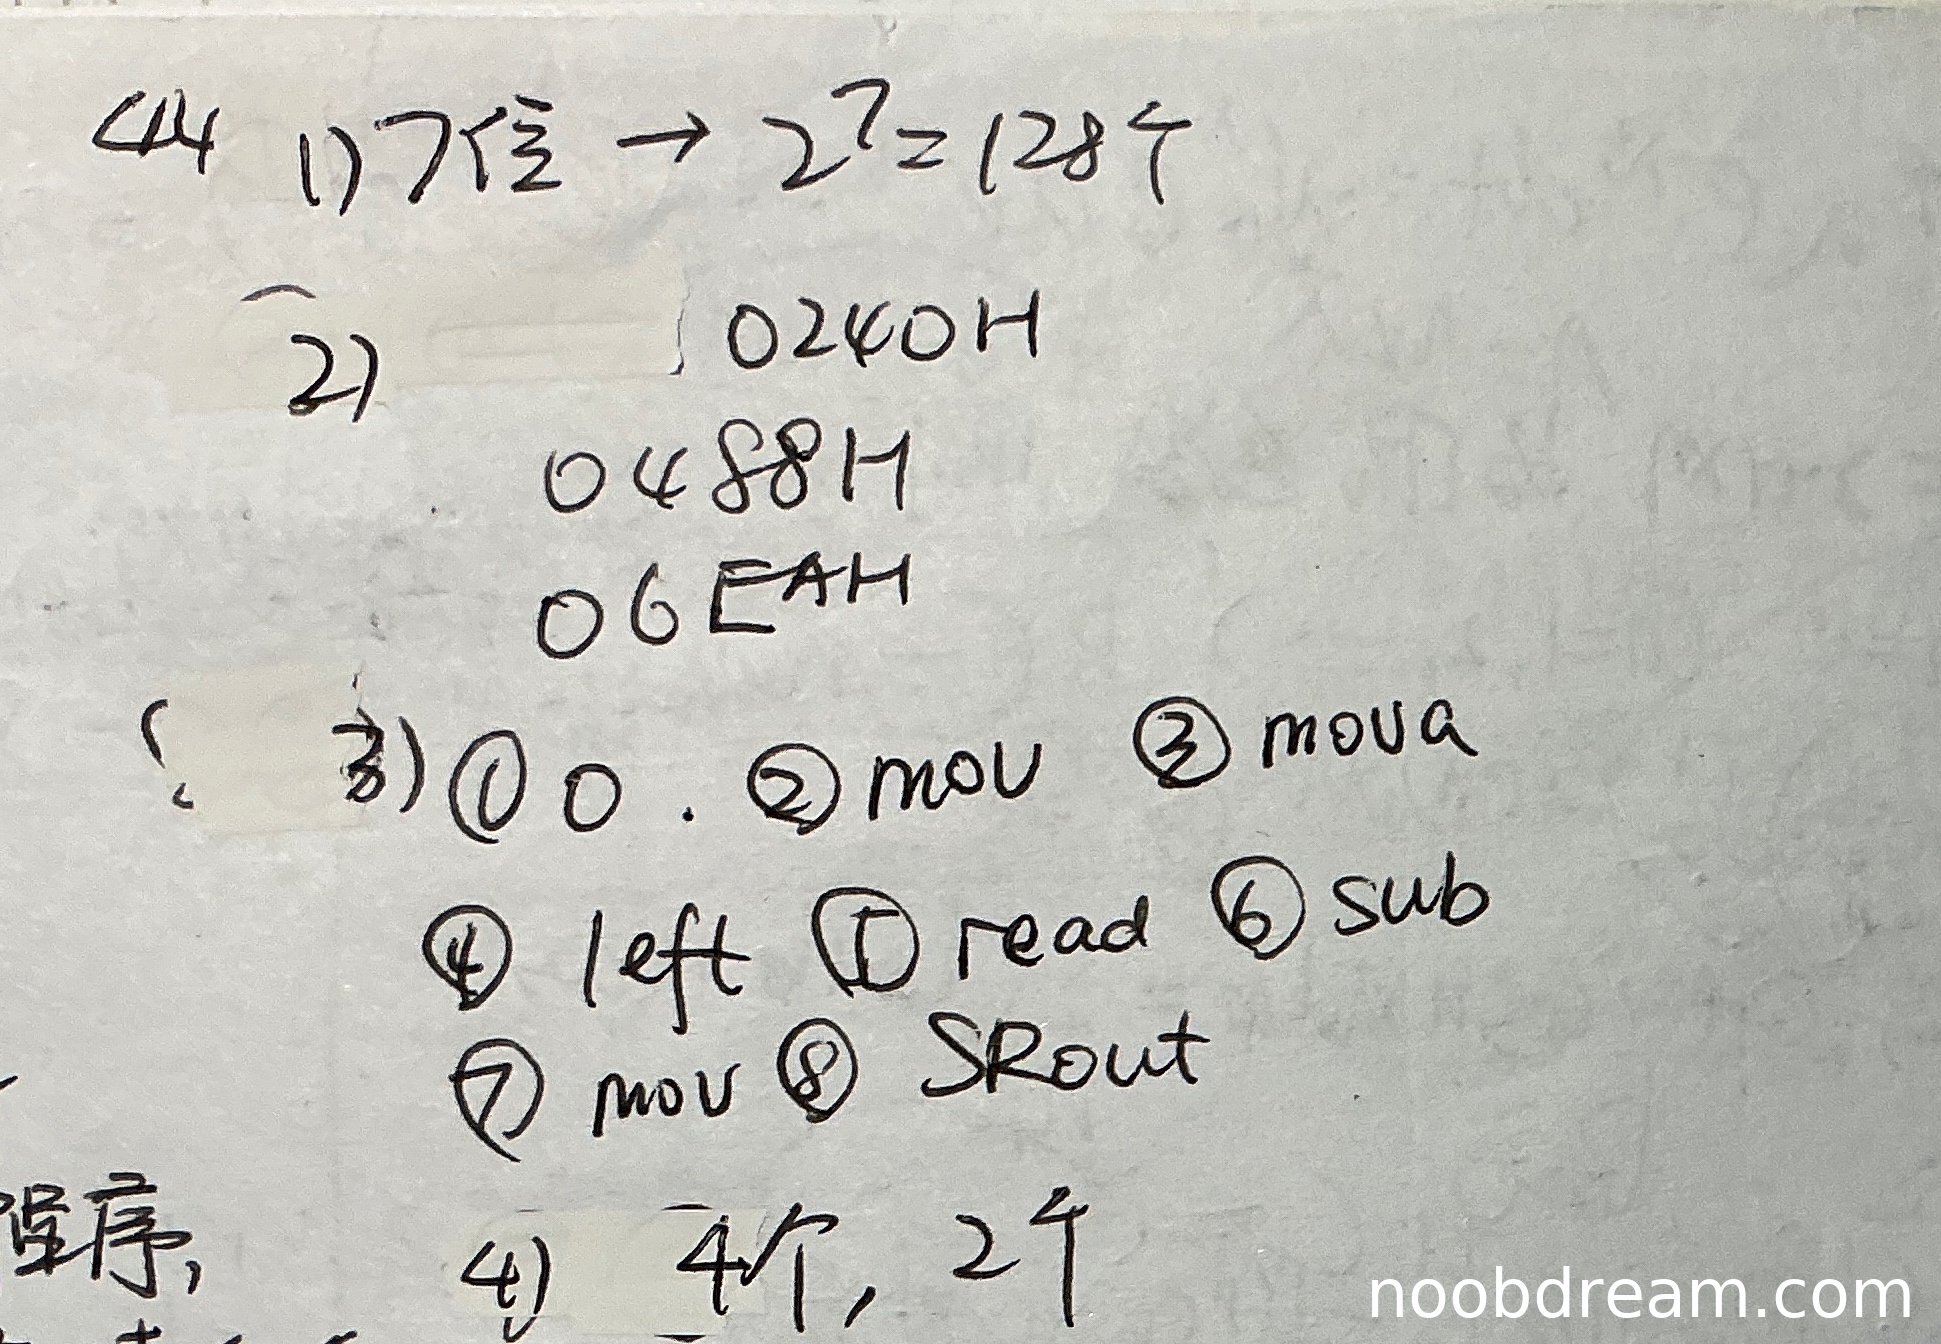 44 1) 7位 → 2⁷=128个
2) 0240H
0488H
06EAH
3) ① 0. ② mov ③ mova
④ left ⑤ read ⑥ sub
⑦ mov ⑧ SRout
程序,
4) 4个, 2个
noobdream.com